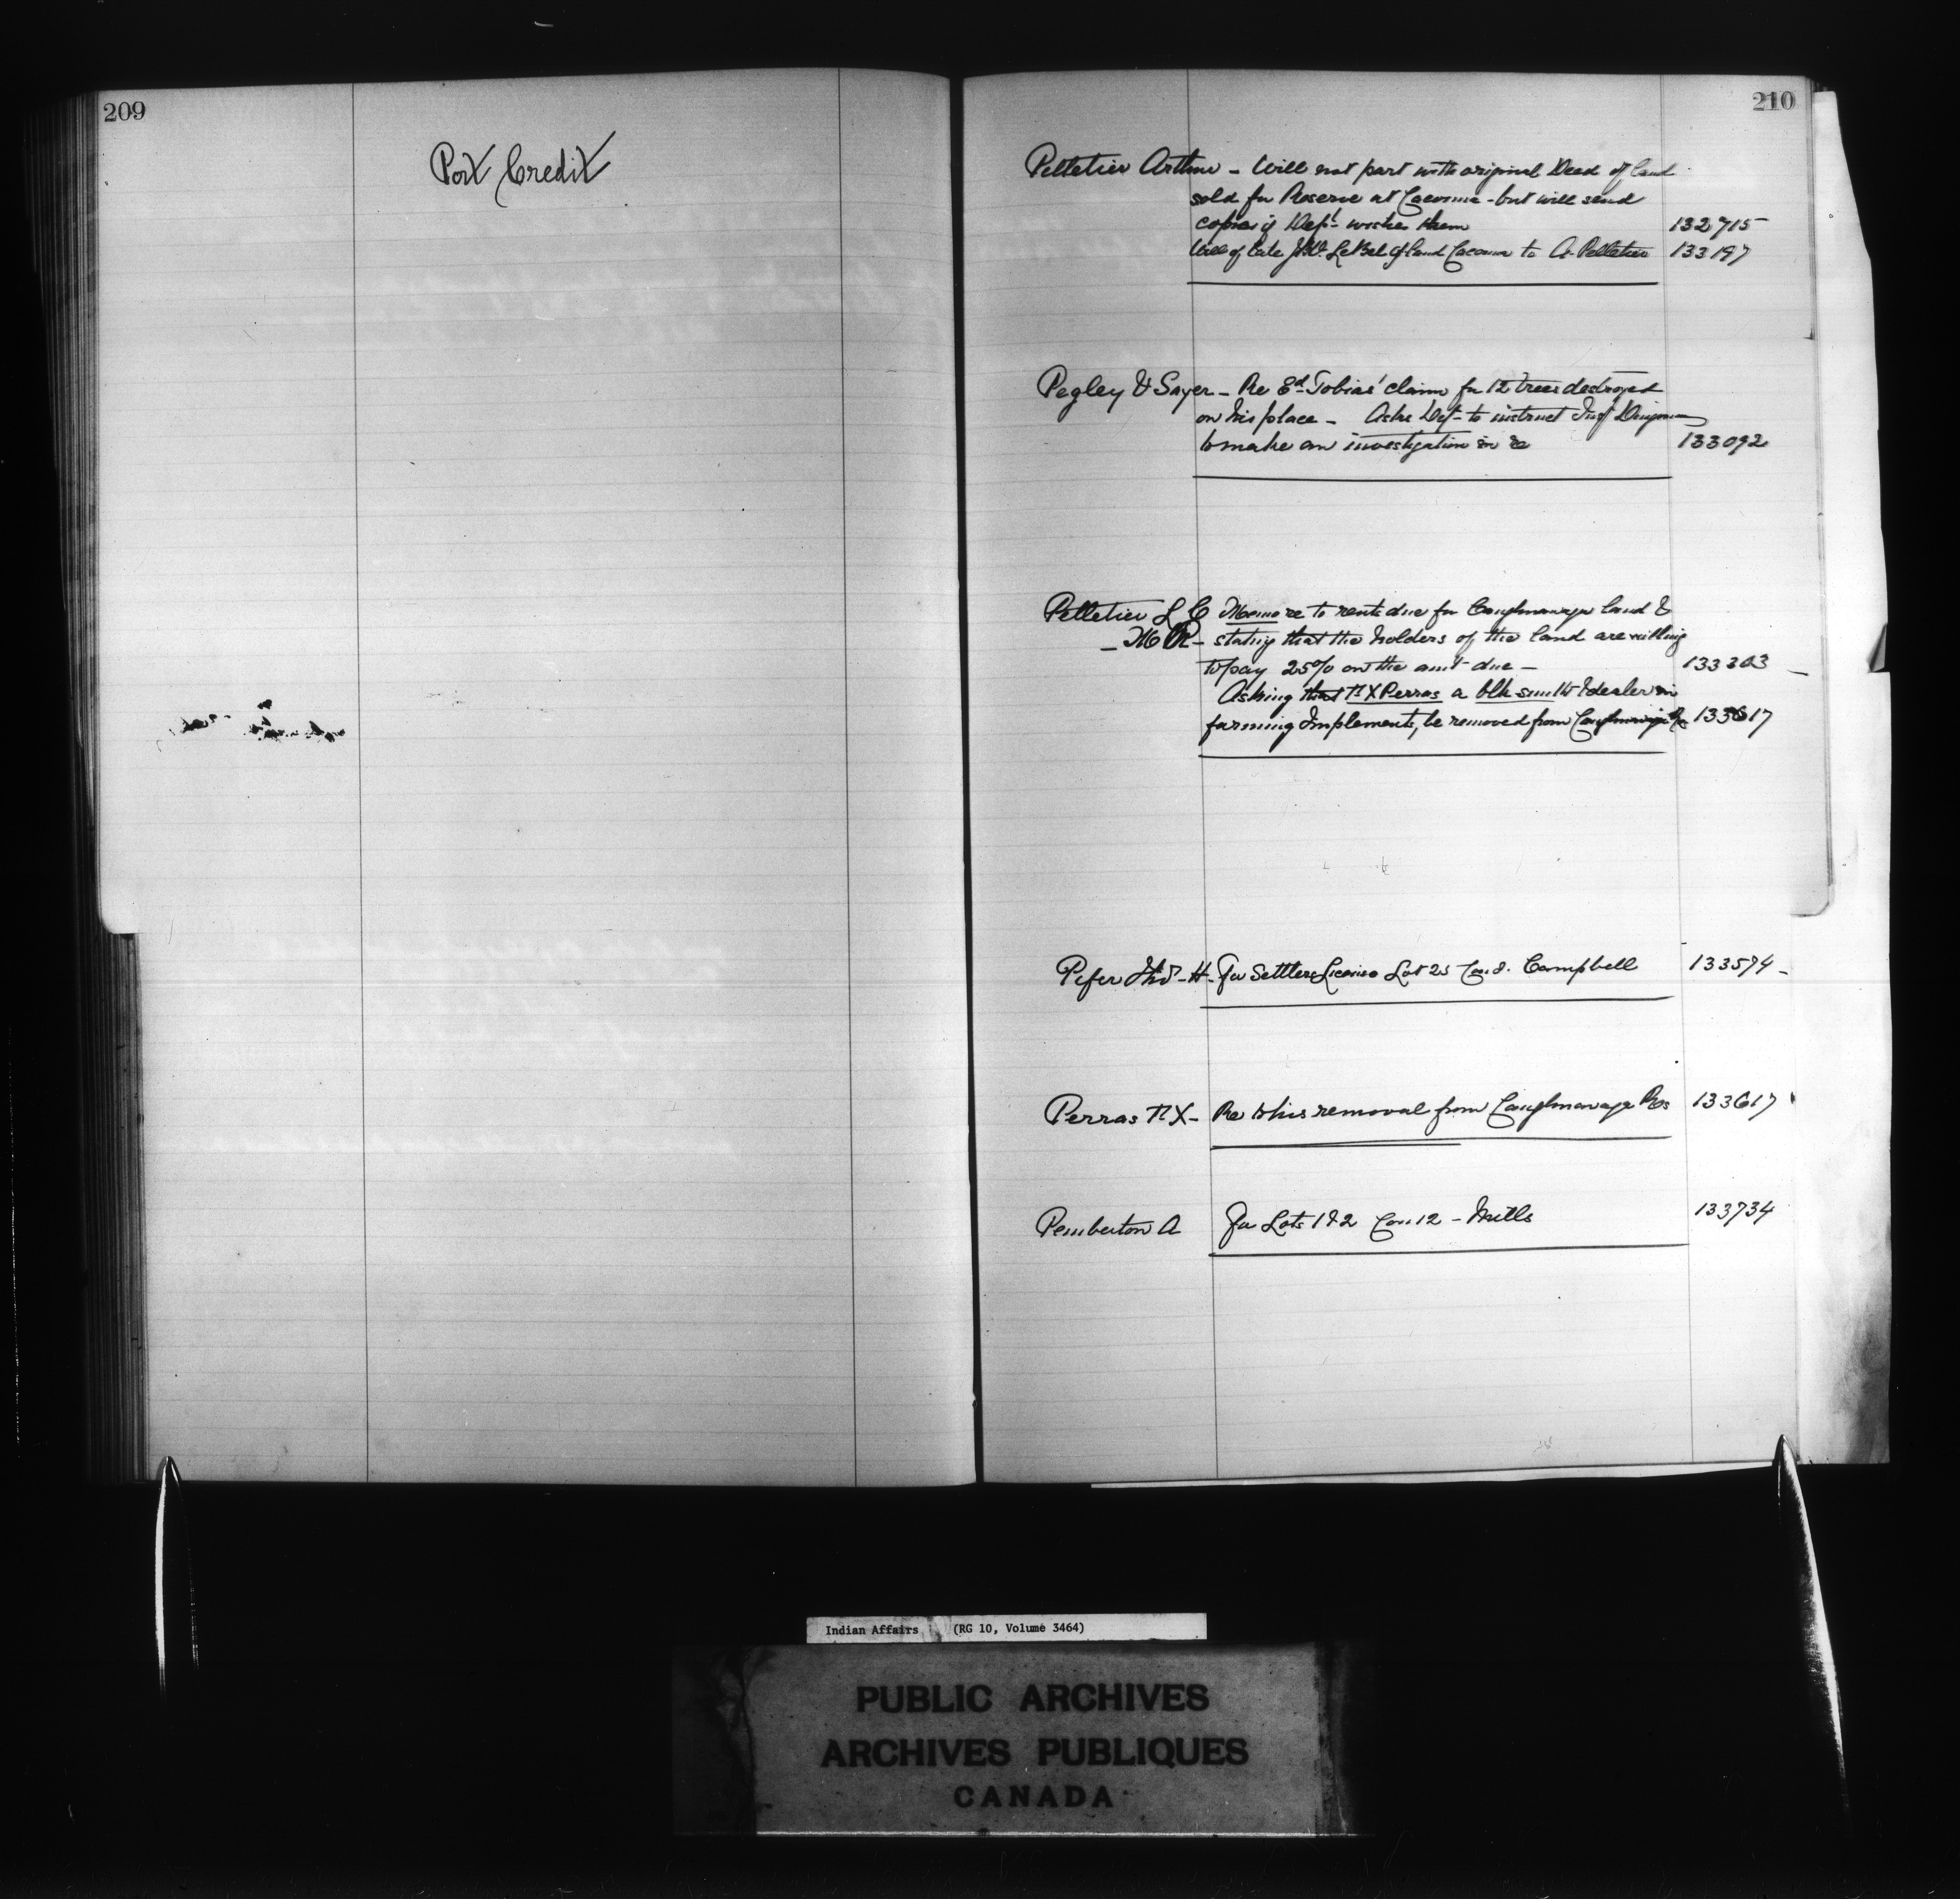 209
Port Credit
210
Pelletier Arthur - Will not part with original Deed of land
sold for Reserve at Cacouna - but will send
copies if Dept wishes them 132715
Will of late LeBel of land Cacouna to A. Pelletier 133197
Pegley & Sayer - Re Ed Tobias' claim for 12 trees destroyed
on his place - Asks Dept to instruct
to make an investigation in re 133092
Pelletier L C Memo re to rents due for Caughnawaga land &
- stating that the holders of the land are willing
to pay 25% on the amt due - 133303
Asking that N X Perras a blk smith & dealer in
farming Implements, be removed from Caughnawaga Res 133617
Pifer - H - For Settlers License Lot 25 Con 8. Campbell 133574 -
Perras N X - Re to his removal from Caughnawaga Res 133617
Pemberton A For Lots 1 & 2 Con 12 - Mills 133734
Indian Affairs (RG 10, Volume 3464)
PUBLIC ARCHIVES
ARCHIVES PUBLIQUES
CANADA